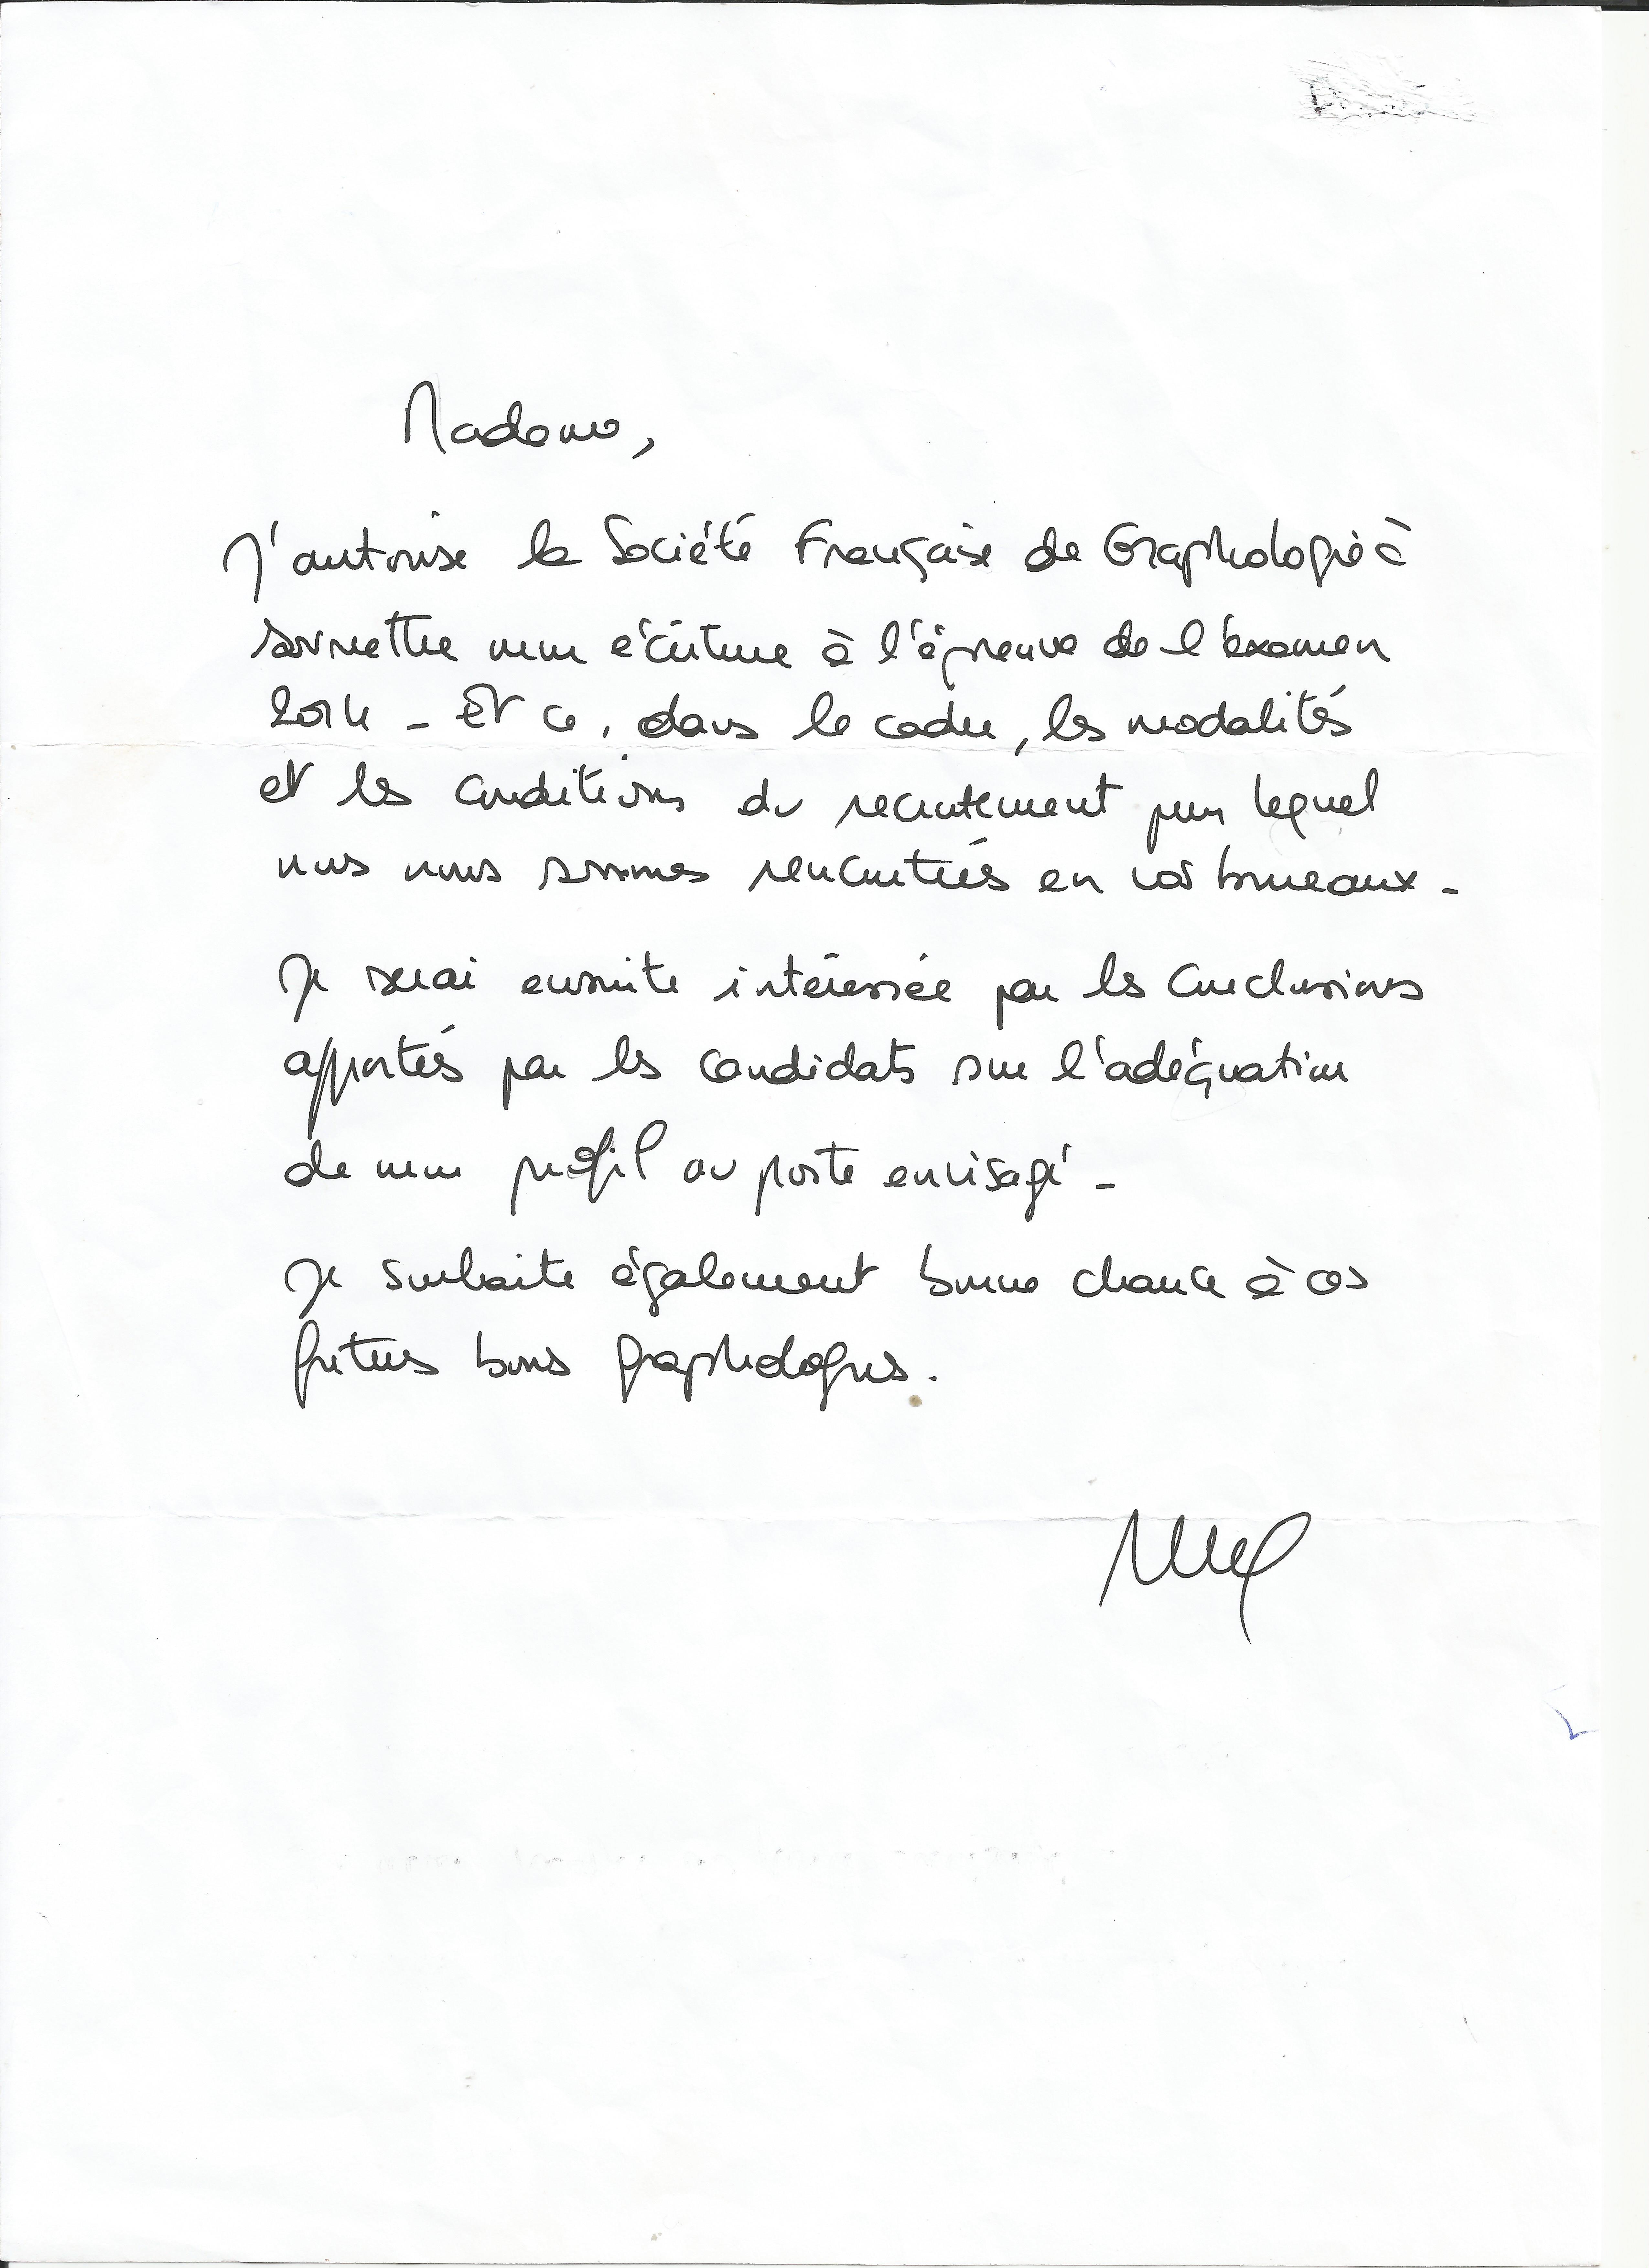 Madame,
J'autorise la Société Française de Graphologie à
soumettre mon écriture à l'épreuve de l'examen
2014 - Et ce, dans le cadre, les modalités
et les conditions du recrutement pour lequel
nous nous sommes rencontrés en vos bureaux -
Je serai ensuite intéressée par les conclusions
apportés par les candidats sur l'adéquation
de mon profil au poste envisagé -
Je souhaite également bonne chance à ces
futurs bons graphologues.